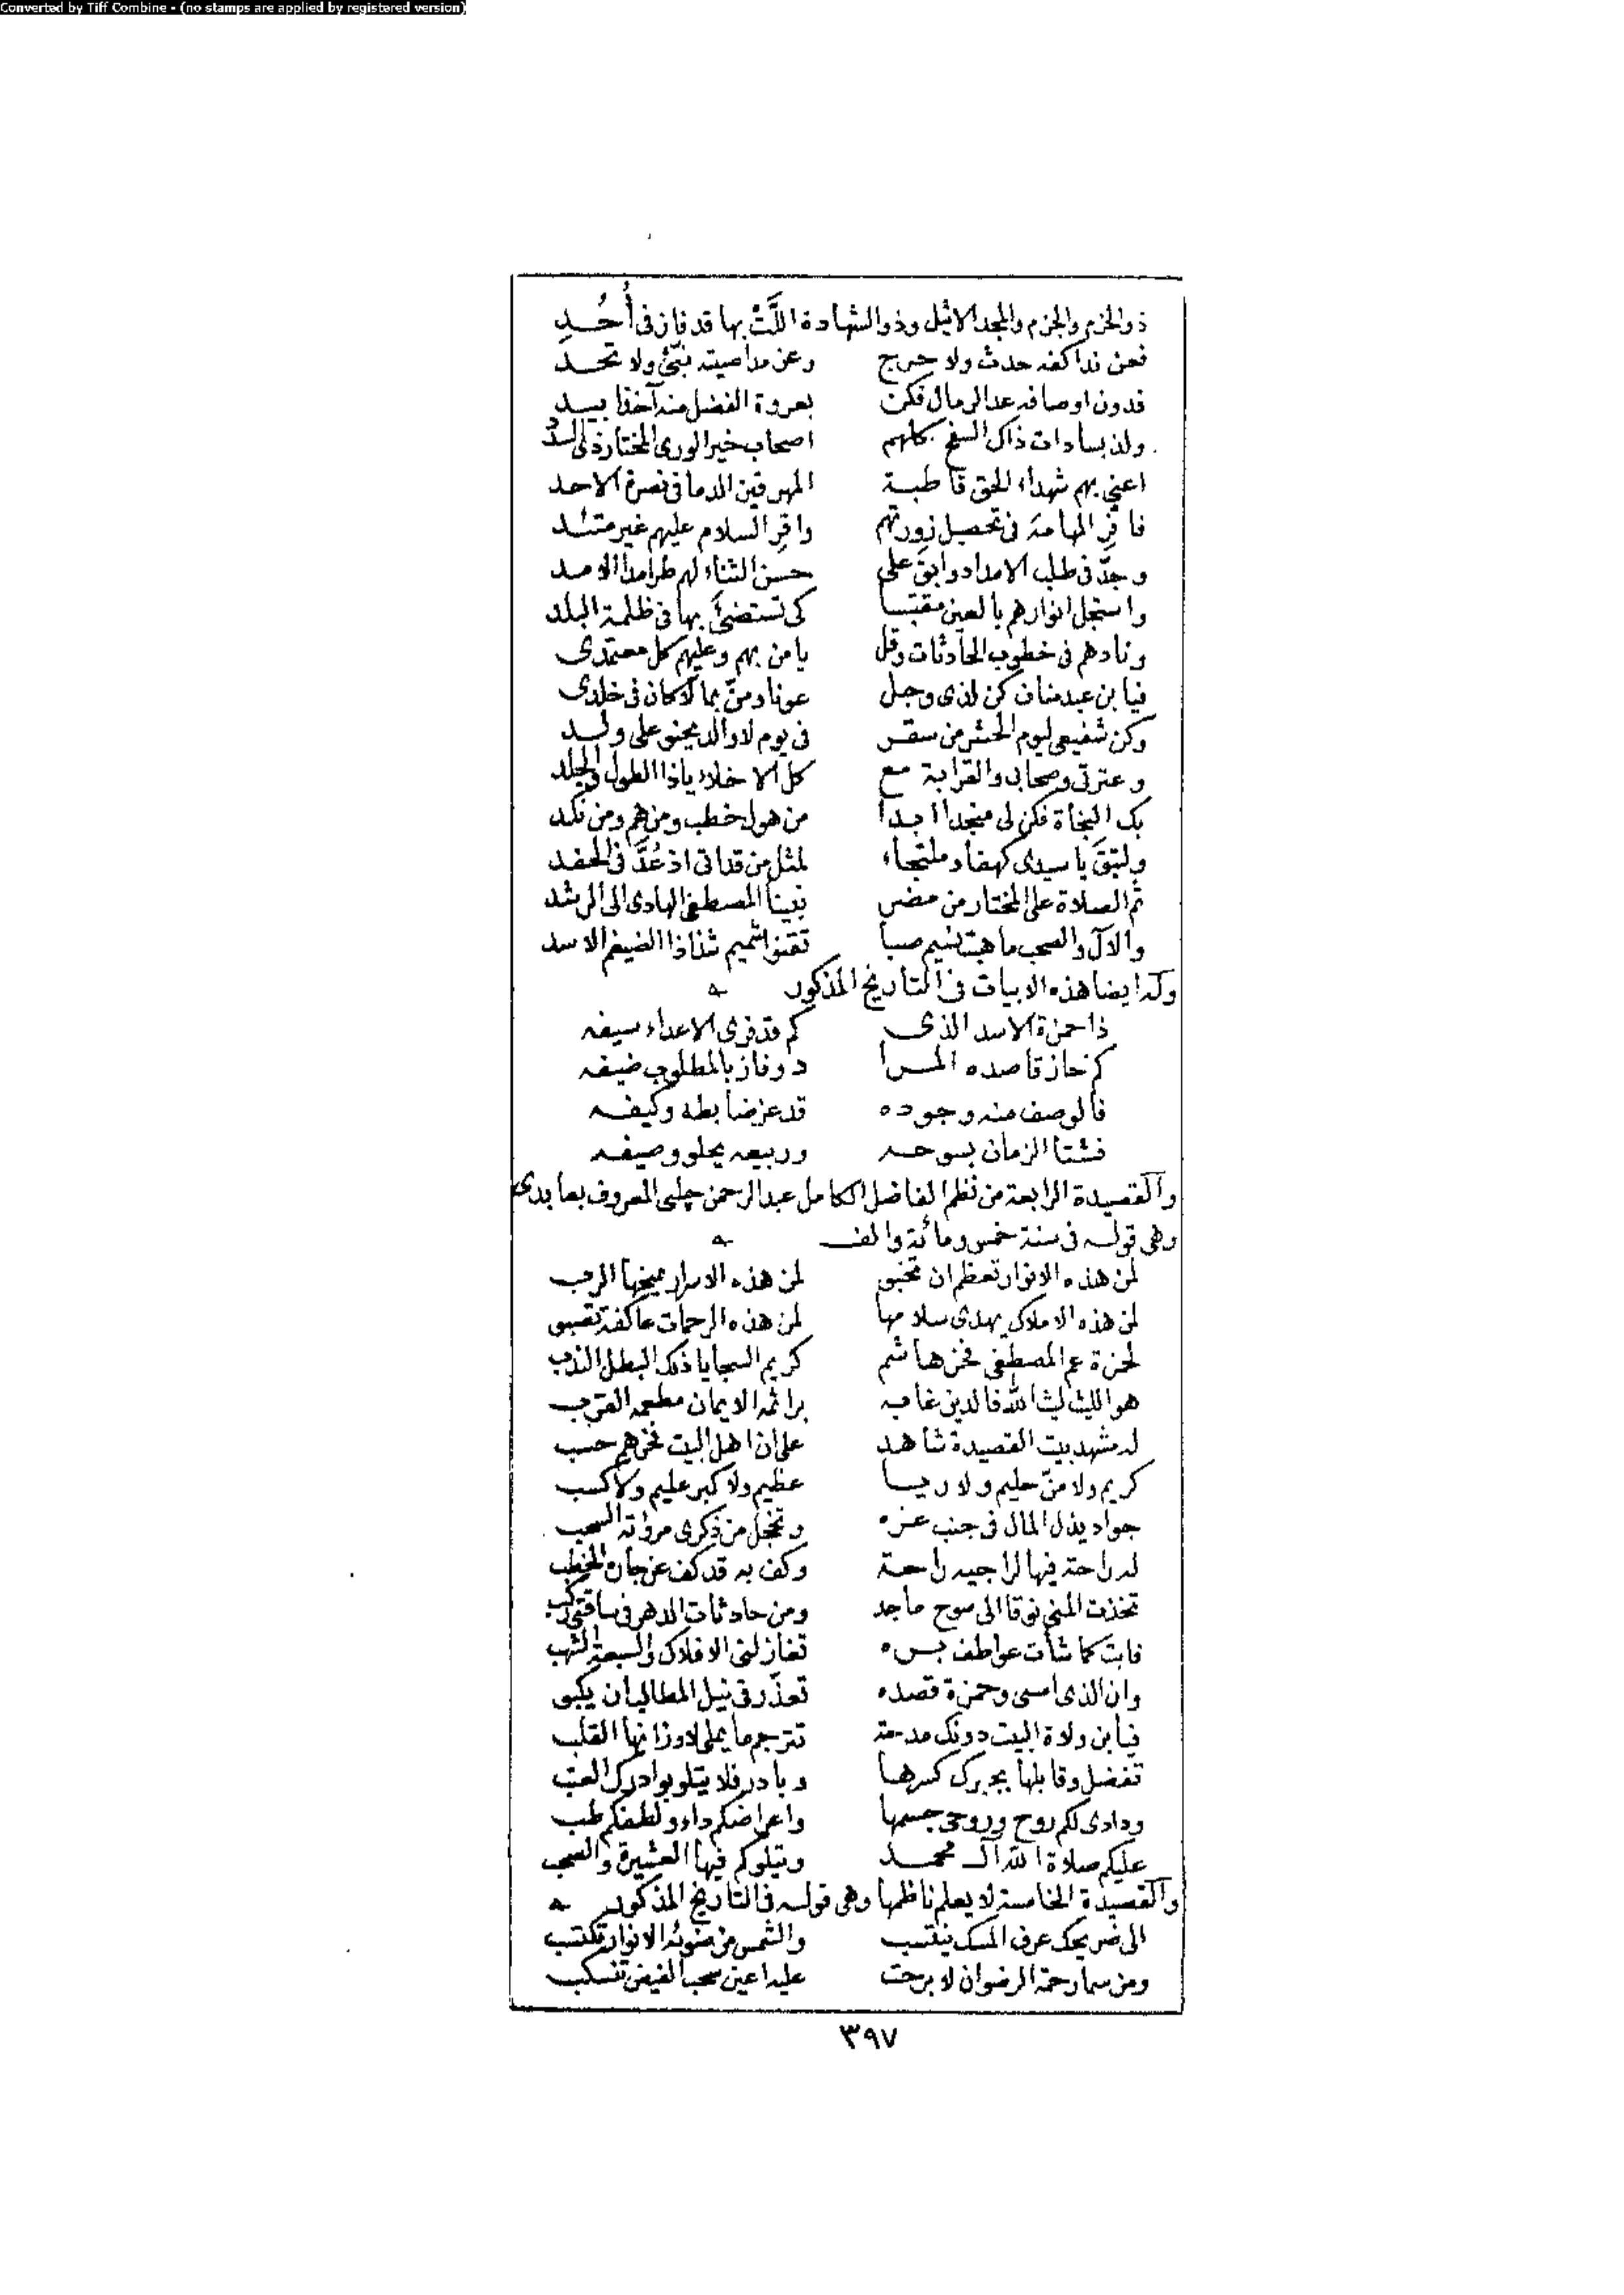 Converted by Tiff Combine - (no stamps are applied by registered version)
ذوالحزم والجزم والمجد الاثيل وذوالشهادة اللَّت بها قد فاز فى أُحُد
فعن ندا كفه حدث ولا حرج وعن مدا صيته نبّئ ولا تحد
فدون اوصافه عد الرمال فكن بعروة الفضل منه آخذا بيد
ولذ بسادات ذاك السفح كلهم اصحاب خير الورى المختار ذى
اعنى بهم شهداء الحق قاطبة المهرقين الدما فى نصرة الاحد
فافرِ المهامه فى تحصيل زورتهم واقرِ السلام عليهم غير متئد
وجدّ فى طلب الامداد وابق على حسن الثناء لهم طرا مدا الامد
واستجل انوارهم بالعين مقتبسا كى تستضئ بها فى ظلمة البلد
ونادهم فى خطوب الحادثات وقل يا من بهم وعليهم كل معتمدى
فيا بن عبد مناف كن لذى وجل عونا ومنّ بما قد كان فى خلدى
وكن شفيعى ليوم الحشر من سقر فى يوم لا والد يحنو على ولد
وعترتى وصحابى والقرابة مع كل الاخلاء يا ذا الطول والجلد
بك النجاة فكن لى منجدا ابدا من هول خطب ومن هم ومن نكد
ولتبقَ يا سيدى كهفا وملتجاء لمثل من قد اتى اذ عُدَّ فى الحفد
ثم الصلاة على المختار من مضر نبينا المصطفى الهادى الى الرشد
والآل والصحب ما هبت نسيم صبا تقفو اشميم شذا ذا الضيغم الاسد
وله ايضا هذه الابيات فى التاريخ المذكور
ذا حمزة الاسد الذى كم قد فرى الاعداء سيفه
كم حاز قاصده المرا د وفاز بالمطلوب ضيفه
فالوصف منه وجوده قد عز ضابطه وكيفه
فشتا الزمان بسوحه وربيعه يحلو وصيفه
والقصيدة الرابعة من نظم الفاضل الكامل عبدالرحمن چلبى المعروف بعابدى
وهى قوله فى سنة خمس ومائة والف
لمن هذه الانوار تعظم ان تخبو لمن هذه الاسرار يمنحها الرب
لمن هذه الاملاك يهدى سلامها لمن هذه الرحمات عاكفة تصبو
لحمزة عم المصطفى فخر هاشم كريم السجايا ذلك البطل الندب
هو الليث ليث الله فالدين غابه براثنه الايمان مطعمه القرب
له مشهد بيت القصيدة شاهد على ان اهل البيت فخرهم حسب
كريم ولا منّ حليم ولا ريا عظيم ولا كبر عليم ولا كسب
جواد يذل المال فى جنب عزه وتخجل من ذكرى مروءته السحب
له راحة فيها لراجيه راحة وكف به قد كف عن جاره الخطب
تخذت المنى نوقا الى سوح ماجد ومن حادثات الدهر فى ساقتى ركب
فابت كما شأت عواطف بره تغازلنى الافلاك والسبعة الشهب
وان الذى امسى وحمزة قصده تعذر فى نيل المطالب ان يكبو
فيا بن ولاة البيت دونك مدحة تترجم ما يملى لاوزانها القلب
تفضل وقابلها بجبرك كسرها وبادر فلا يتلو بوادرك العتب
ودادى لكم روح وروحى جسمها واعراضكم داء ولطفكم طب
عليكم صلاة الله آل محمد ويتلوكم فيها العشيرة والصحب
والقصيدة الخامسة لا يعلم ناظمها وهى قوله فى التاريخ المذكور
الى ضريحك عرف المسك ينتسب والشمس من ضوئه الانوار تكتسب
ومن سما رحمة الرضوان لا برحت عليه اعين سحب الفيض تنسكب
٣٩٧